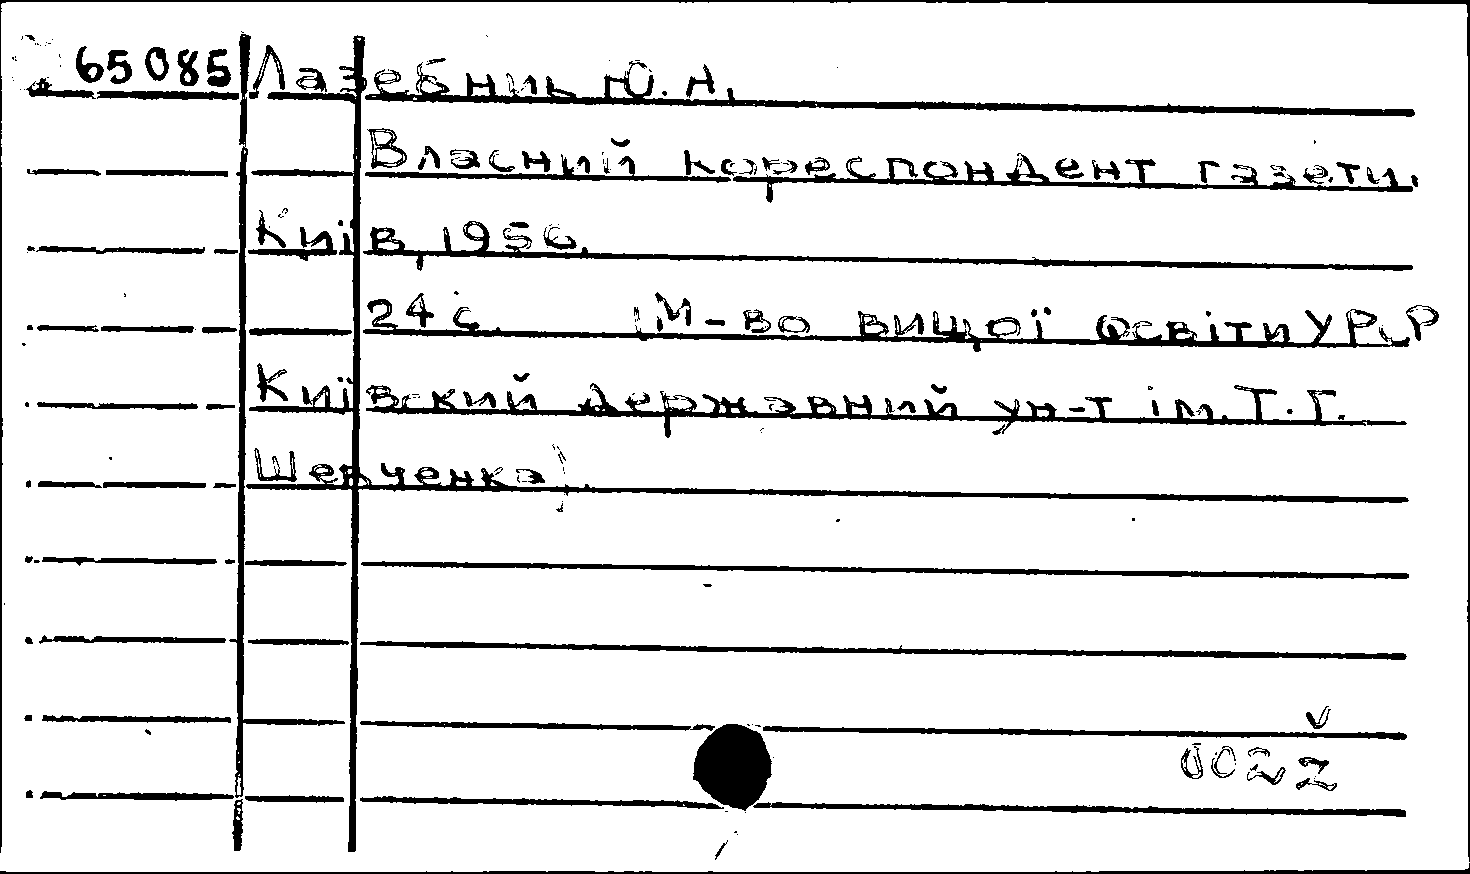 65085 Лазебник Ю. А.
Власний кореспондент газети.
Київ, 1956.
24 с. (М-во вищої освіти УРСР
Київский державний ун-т ім. Т. Г.
Шевченка).